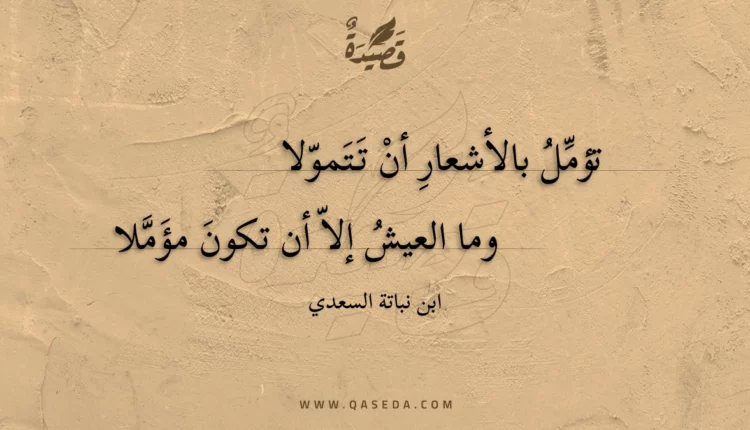 قَصِيدَةٌ
تؤمِّلُ بالأشعارِ أنْ تَتَموّلا
وما العيشُ إلاّ أن تكونَ مؤَمَّلا
ابن نباتة السعدي
WWW.QASEDA.COM